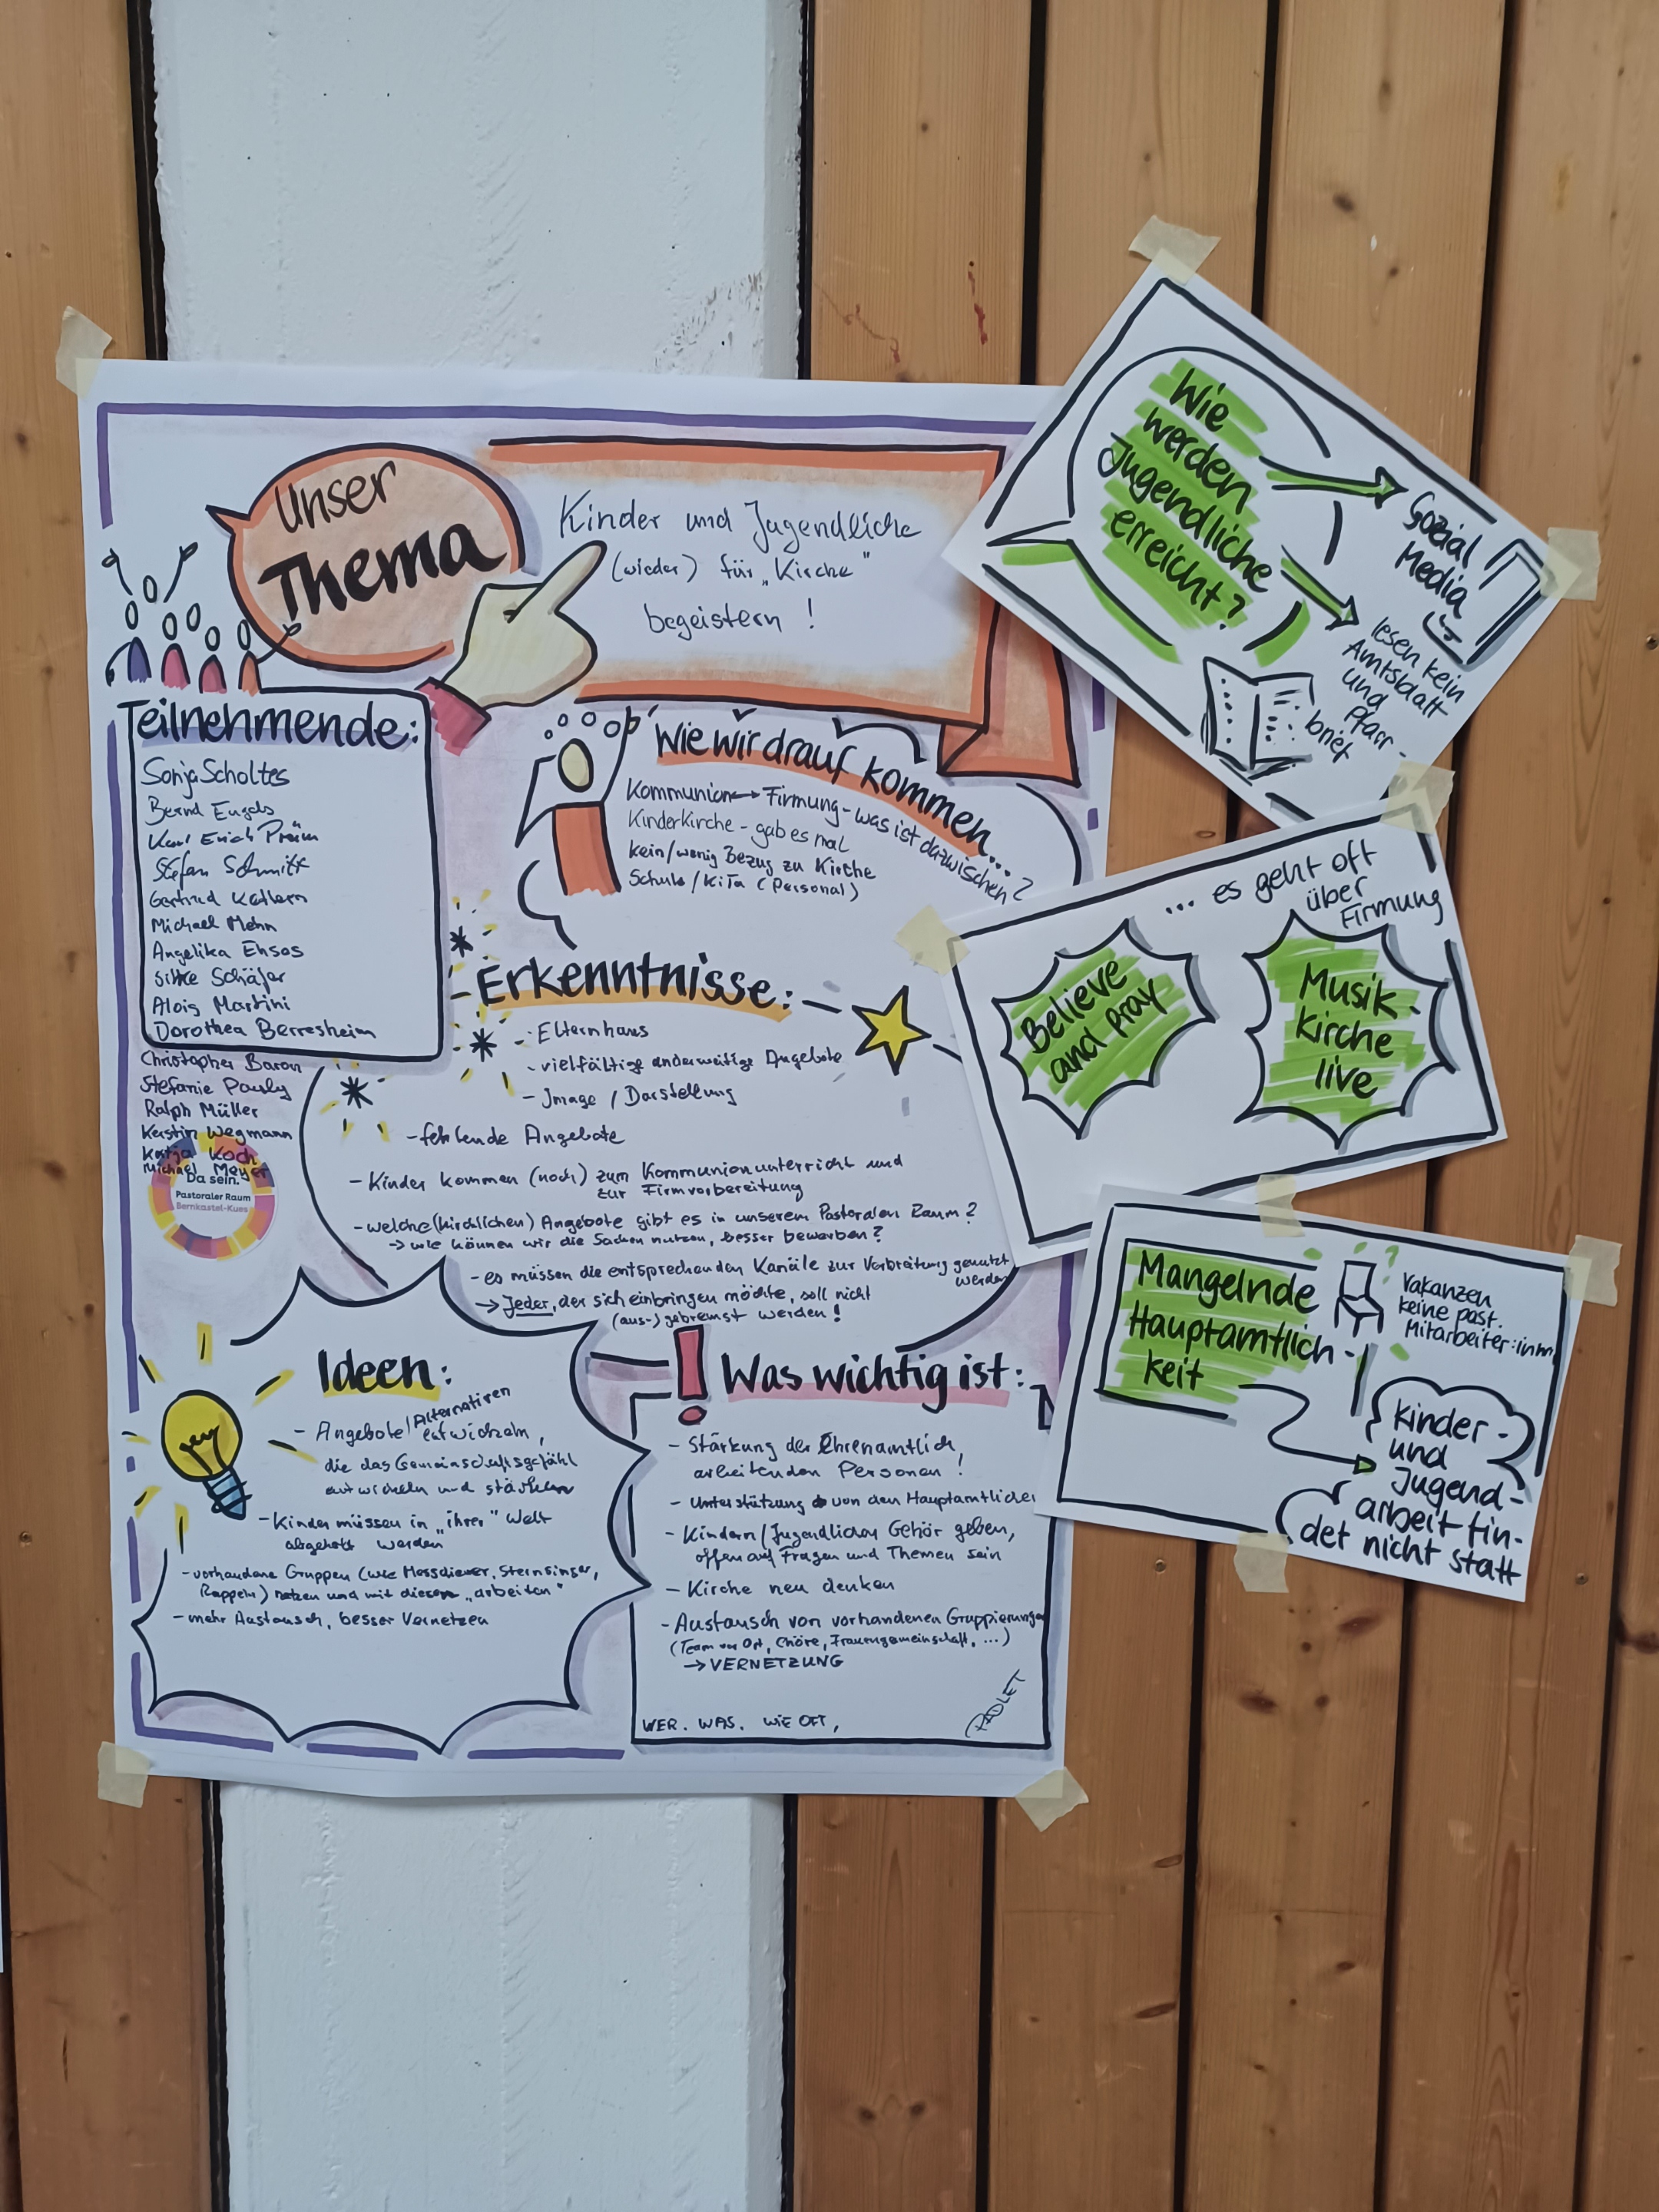 Unser
Thema
Kinder und Jugendliche
(wieder) für „Kirche"
begeistern !
Teilnehmende:
Sonja Scholtes
Bernd Engels
Karl Erich
Stefan Schmitt
Gertrud
Michael
Angelika
Silke Schäfer
Alois Martini
Dorothea Berresheim
Christopher Baron
Stefanie Pauly
Ralph Müller
Kerstin Wegmann
Katja Koch
Michael Meyer
Da sein.
Pastoraler Raum
Bernkastel-Kues
Wie wir drauf kommen...
Kommunion ↔ Firmung - was ist dazwischen?
Kinderkirche - gab es mal
kein/wenig Bezug zu Kirche
Schule / KiTa (Personal)
Erkenntnisse:
- Elternhaus
- vielfältige anderweitige Angebote
- Image / Darstellung
- fehlende Angebote
- Kinder kommen (noch) zum Kommunionunterricht und
zur Firmvorbereitung
- welche (kirchlichen) Angebote gibt es in unserem Pastoralen Raum?
→ wie können wir die Sachen nutzen, besser bewerben?
- es müssen die entsprechenden Kanäle zur Verbreitung genutzt
werden
→ Jeder, der sich einbringen möchte, soll nicht
(aus-) gebremst werden!
Ideen:
- Angebote / Alternativen
entwickeln,
die das Gemeinschaftsgefühl
entwickeln und stärken
- Kinder müssen in „ihrer" Welt
abgeholt werden
- vorhandene Gruppen (wie Messdiener, Sternsinger,
Rappeln) nutzen und mit diesen „arbeiten"
- mehr Austausch, besser Vernetzen
Was wichtig ist:
- Stärkung der Ehrenamtlich
arbeitenden Personen!
- Unterstützung von den Hauptamtlichen
- Kindern/Jugendlichen Gehör geben,
offen auf Fragen und Themen sein
- Kirche neu denken
- Austausch von vorhandenen Gruppierungen
(Team vor Ort, Chöre, Frauengemeinschaft, ...)
→ VERNETZUNG
PADLET
WER. WAS. WIE OFT,
Wie
werden
Jugendliche
erreicht?
Sozial
Media
lesen kein
Amtsblatt
und
Pfarr-
brief
... es geht oft
über
Firmung
Believe
and pray
Musik-
kirche
live
Mangelnde
Hauptamtlich-
keit
?
Vakanzen
keine past.
Mitarbeiter:inn
Kinder-
und
Jugend-
arbeit fin-
det nicht statt